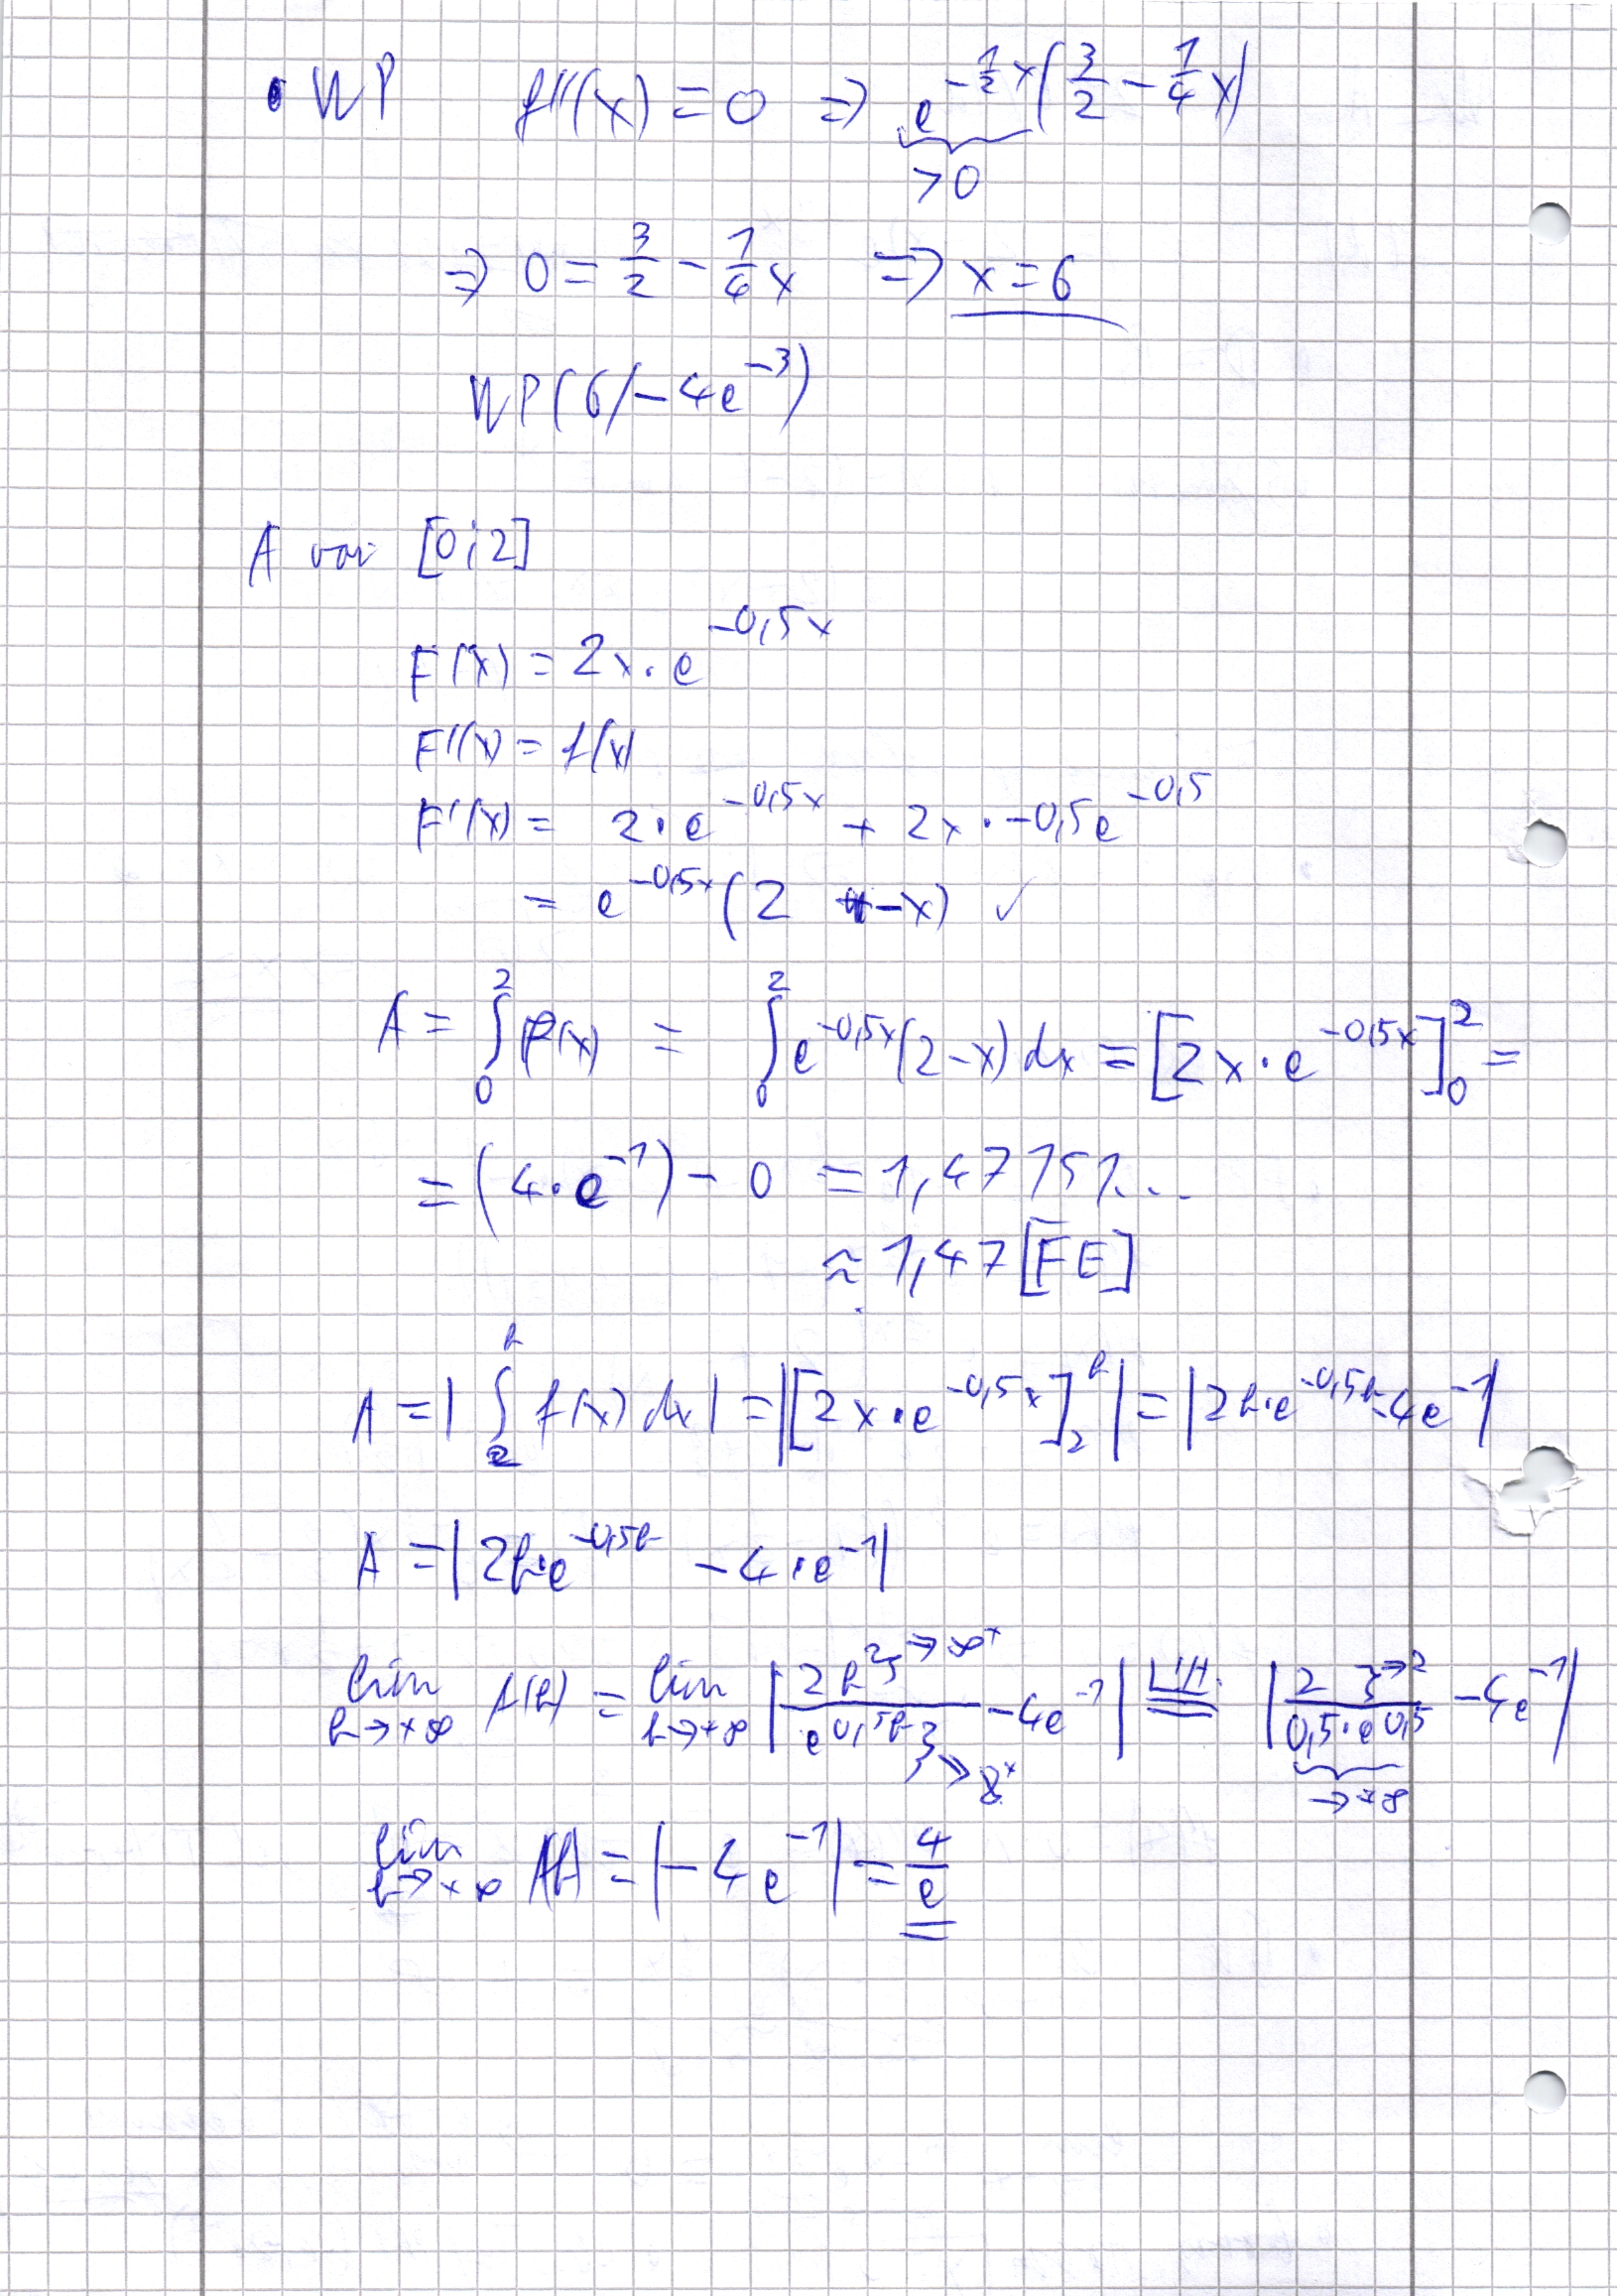 • WP f''(x) = 0 ⇒ e^{-1/2 x}(3/2 - 1/4 x)
> 0
⇒ 0 = 3/2 - 1/4 x ⇒ x = 6
WP(6/-4e^{-3})
A von [0;2]
F(x) = 2x · e^{-0,5x}
F'(x) = f(x)
F'(x) = 2 · e^{-0,5x} + 2x · -0,5e^{-0,5}
= e^{-0,5x}(2 - x) ✓
A = ∫_0^2 f(x) = ∫_0^2 e^{-0,5x}(2-x) dx = [2x · e^{-0,5x}]_0^2 =
= (4 · e^{-1}) - 0 = 1,47151...
≈ 1,47 [FE]
A = |∫_2^k f(x) dx| = |[2x · e^{-0,5x}]_2^k| = |2k·e^{-0,5k} - 4e^{-1}|
A = |2k·e^{-0,5k} - 4 · e^{-1}|
lim k→+∞ A(k) = lim k→+∞ |2k}→∞^+ / e^{0,5k}}→∞^+ - 4e^{-1}| L'H. = |2 }→2 / 0,5·e^{0,5} - 4e^{-1}|
→+∞
lim k→+∞ A(k) = |-4e^{-1}| = 4/e